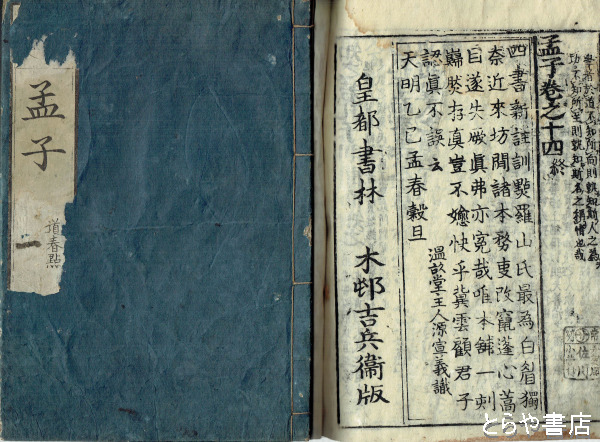 孟子
道春點
一
孟子卷之十四 終
四書新註訓點羅山氏最為白眉獨
奈近來坊間諸本務更改竄蓬心蒿
目遂失厥眞弗亦寃哉唯本舖一刻
巋然存眞豈不愉快乎冀雲顧君子
認眞不誤云
溫故堂主人源宣義識
天明乙巳孟春穀旦
皇都書林 木邨吉兵衞版
とらや書店